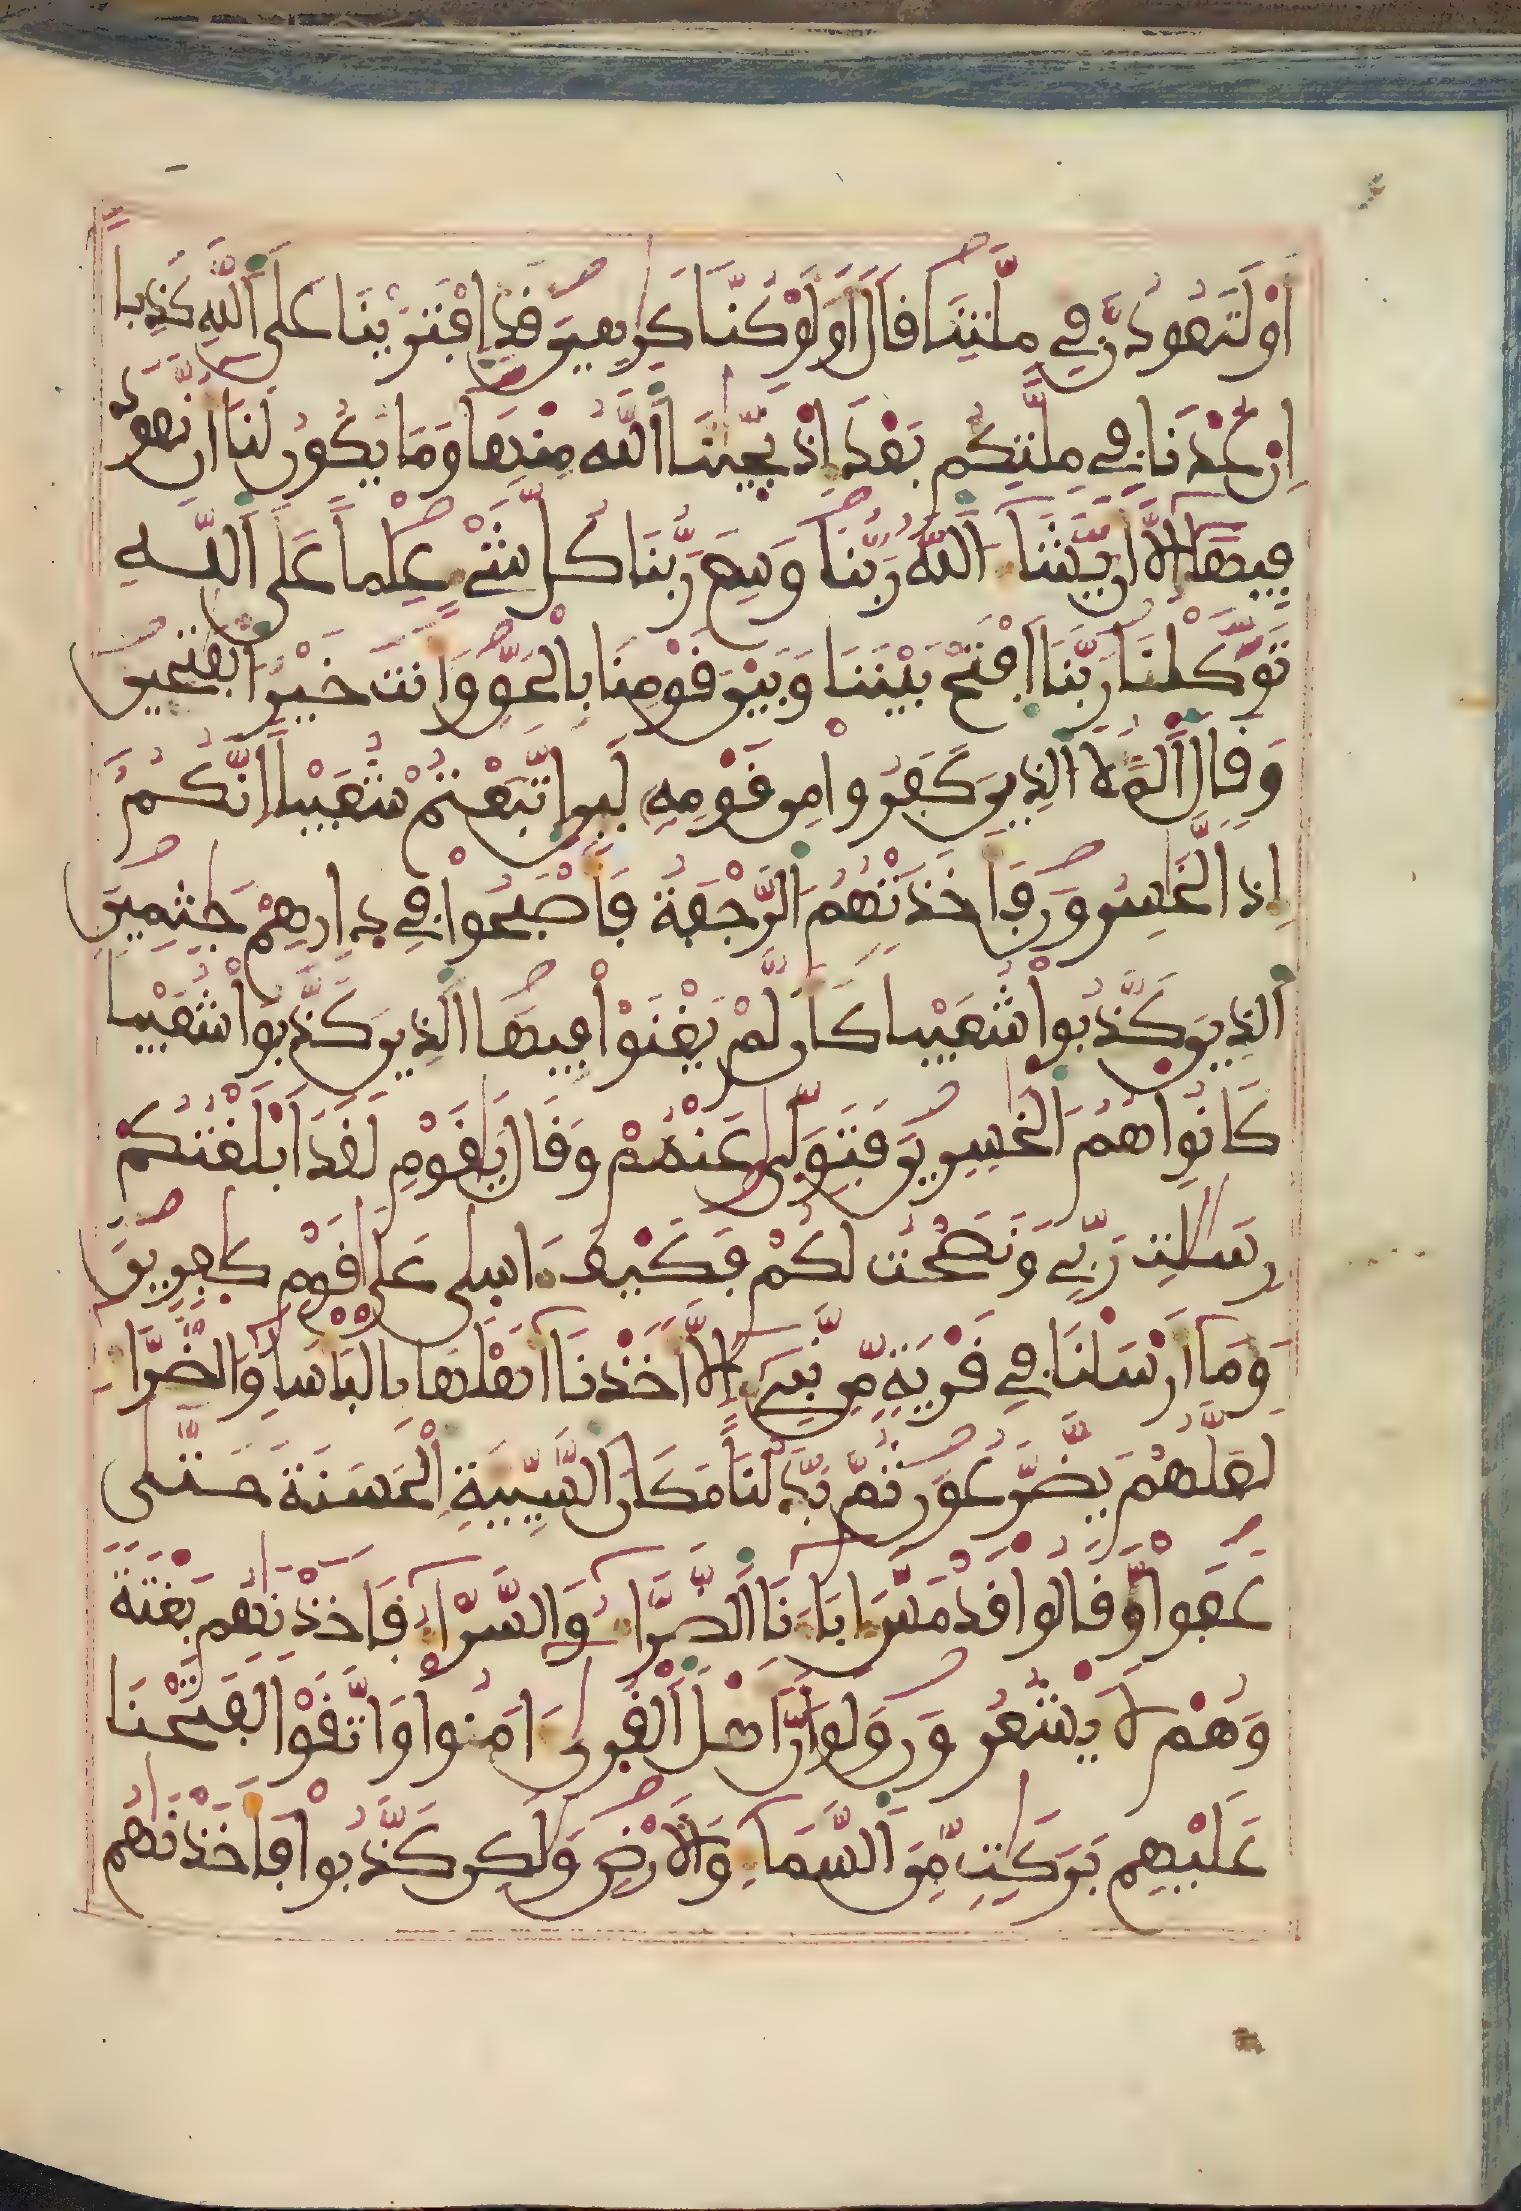 أَوْ لَتَعُودُنَّ فِي مِلَّتِنَا قَالَ أَوَلَوْ كُنَّا كَٰرِهِينَ قَدِ اِفْتَرَيْنَا عَلَى اَللَّهِ كَذِباً
اِنْ عُدْنَا فِي مِلَّتِكُم بَعْدَ إِذْ نَجَّيٰنَا اَللَّهُ مِنْهَا وَمَا يَكُونُ لَنَا أَن نَّعُودَ
فِيهَا إِلَّا أَنْ يَّشَآءَ اَللَّهُ رَبُّنَا وَسِعَ رَبُّنَا كُلَّ شَيْءٍ عِلْماً عَلَى اَللَّهِ
تَوَكَّلْنَا رَبَّنَا اَفْتَحْ بَيْنَنَا وَبَيْنَ قَوْمِنَا بِالْحَقِّ وَأَنتَ خَيْرُ اَلْفَٰتِحِينَ
وَقَالَ اَلْمَلَأُ اَلذِينَ كَفَرُوا مِن قَوْمِهِ لَئِنِ اِتَّبَعْتُمْ شُعَيْباً اِنَّكُمُ
إِذاً لَّخَٰسِرُونَ فَأَخَذَتْهُمُ اَلرَّجْفَةُ فَأَصْبَحُوا فِي دِارِهِمْ جَٰثِمِينَ
اَلذِينَ كَذَّبُوا شُعَيْباً كَأَن لَّمْ يَغْنَوْا فِيهَا اَلذِينَ كَذَّبُوا شُعَيْباً
كَانُوا هُمُ اَلْخَٰسِرِينَ فَتَوَلّٰى عَنْهُمْ وَقَالَ يَٰقَوْمِ لَقَدَ اَبْلَغْتُكُمْ
رِسَٰلَٰتِ رَبِّي وَنَصَحْتُ لَكُمْ فَكَيْفَ ءَاسىٰ عَلَىٰ قَوْمٍ كٰفِرِينَ
وَمَآ أَرْسَلْنَا فِي قَرْيَةٍ مِّن نَّبِيٓءٍ اِلَّا أَخَذْنَا أَهْلَهَا بِالْبَأْسَآءِ وَالضَّرَّآءِ
لَعَلَّهُمْ يَضَّرَّعُونَ ثُمَّ بَدَّلْنَا مَكَانَ اَلسَّيِّئَةِ اِلْحَسَنَةَ حَتَّىٰ
عَفَوْا وَّقَالُوا قَدْ مَسَّ ءَابَآءَنَا اَلضَّرَّآءُ وَالسَّرَّآءُ فَأَخَذْنَٰهُم بَغْتَةً
وَهُمْ لَا يَشْعُرُونَ وَلَوَ اَنَّ أَهْلَ اَلْقُرىٰ ءَامَنُوا وَاتَّقَوْا لَفَتَحْنَا
عَلَيْهِم بَرَكَٰتٍ مِّنَ اَلسَّمَآءِ وَالْأَرْضِ وَلَٰكِن كَذَّبُوا فَأَخَذْنَٰهُم